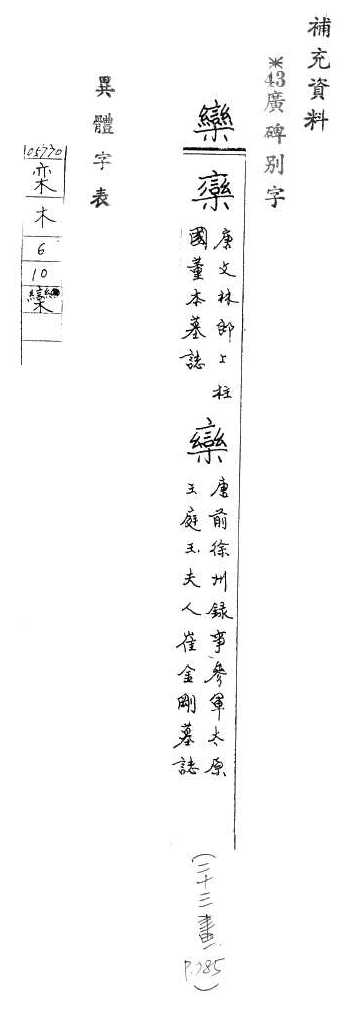 補充資料
※43廣碑別字
欒
栾
唐文林郎上柱
國董本墓誌
欒
唐前徐州録事參軍太原
王庭玉夫人崔金剛墓誌
(二十三畫 P.785)
異體字表
05770
栾
木
6
10
欒